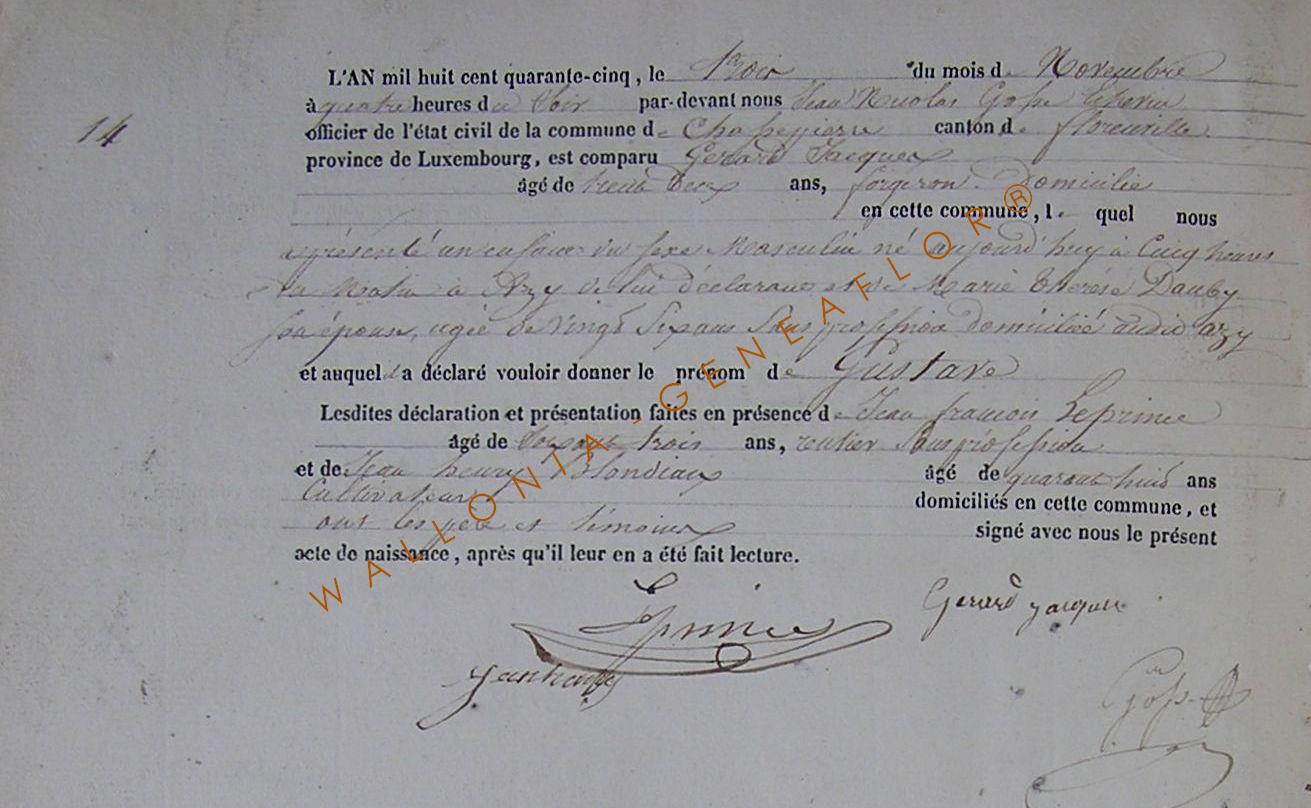 14
L'AN mil huit cent quarante-cinq, le trois du mois de Novembre
à quatre heures du Soir par-devant nous Jean Nicolas Gosse Echevin
officier de l'état civil de la commune de Chassepierre canton de florenville
province de Luxembourg, est comparu Gerard Jacques
âgé de trente deux ans, forgeron Domicilié
en cette commune, le quel nous
a présenté un enfant du sexe Masculin né aujourd'huy à Cinq heures
du Matin à Azy de lui déclarant et de Marie Thérése Dauby
son épouse, agée de vingt Six ans Sans profession domiciliée audit azy
et auquel il a déclaré vouloir donner le prénom de Gustave
Lesdites déclaration et présentation faites en présence de Jean francois Leprince
âgé de Soixante trois ans, rentier Sans profession
et de Jean henry Blondiaux âgé de quarante huit ans
Cultivateur domiciliés en cette commune, et
ont les père et témoins signé avec nous le présent
acte de naissance, après qu'il leur en a été fait lecture.
Leprince
Gerard jacques
Goffe
WALLONIA-GENEAFLOR®